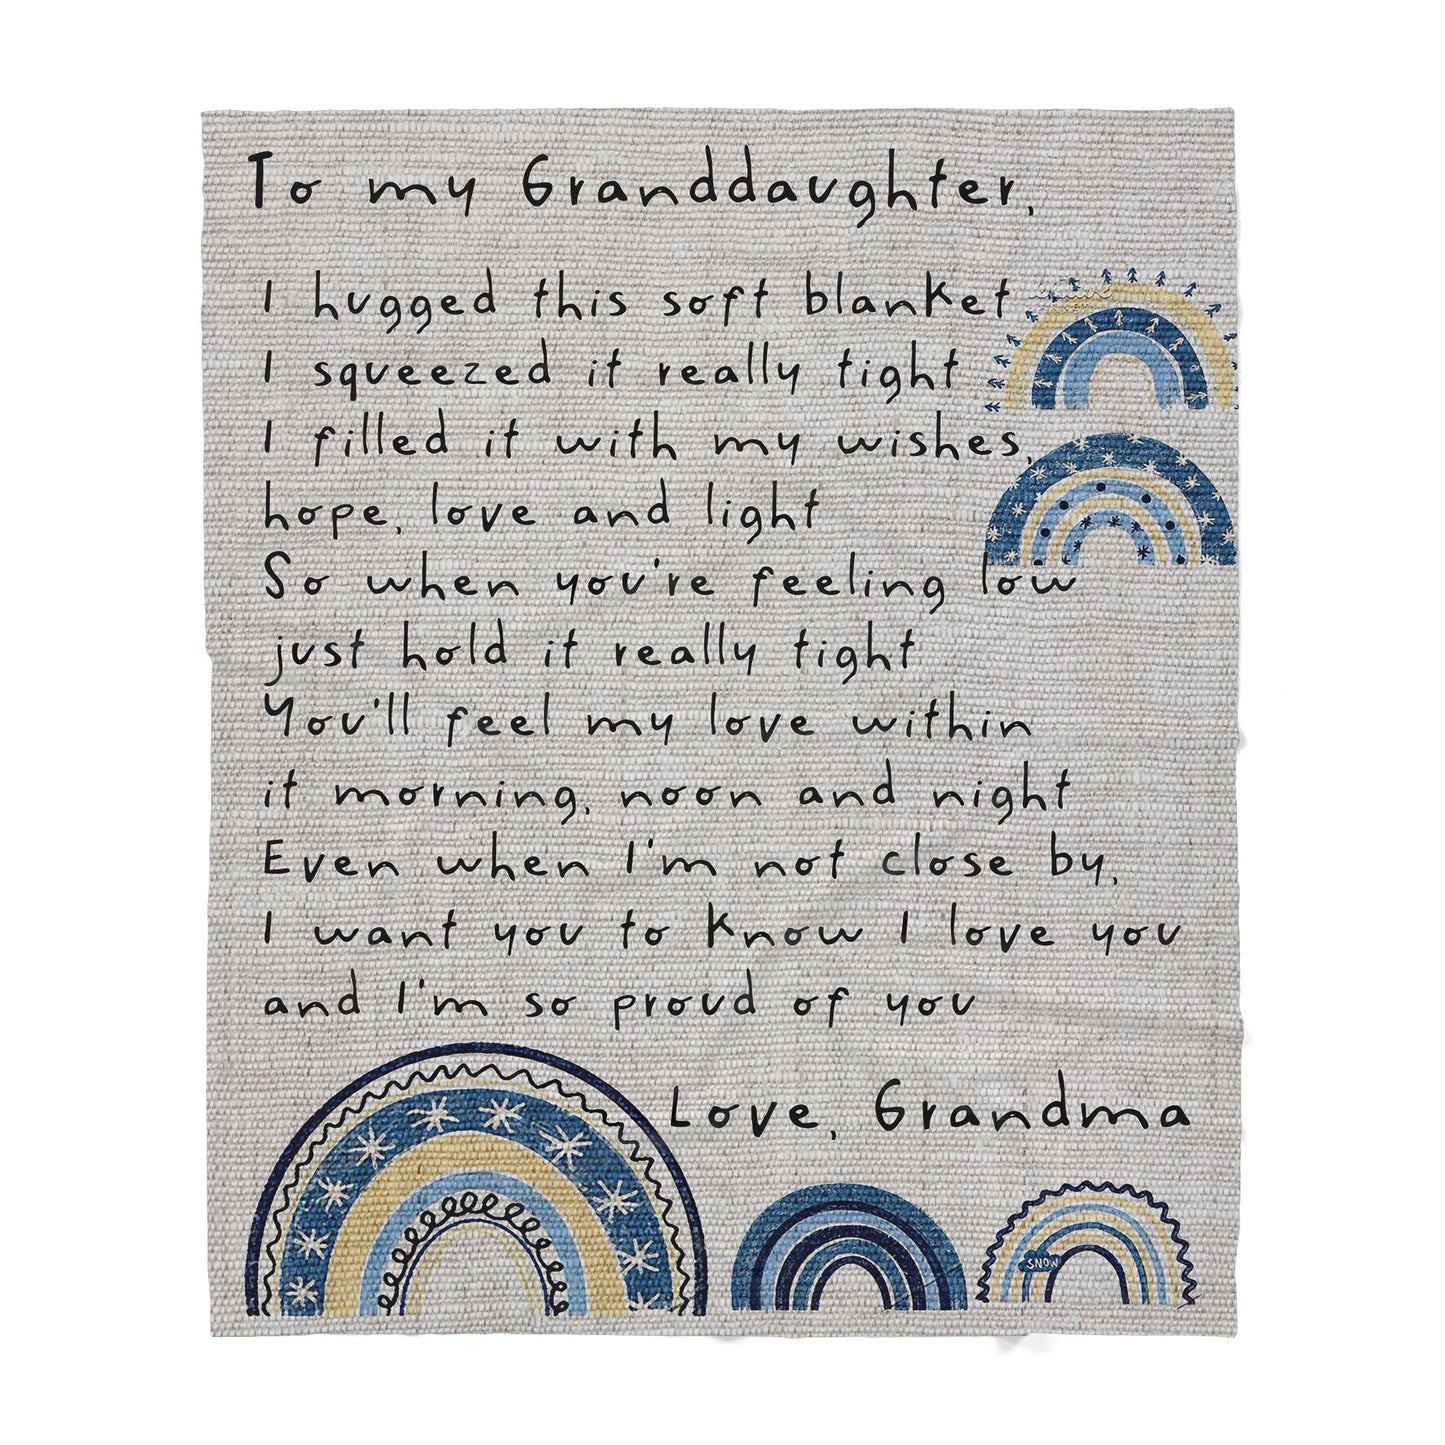 To my Granddaughter,
I hugged this soft blanket
I squeezed it really tight
I filled it with my wishes,
hope, love and light
So when you're feeling low
just hold it really tight
You'll feel my love within
it morning, noon and night
Even when I'm not close by,
I want you to know I love you
and I'm so proud of you
Love, Grandma
SNOW